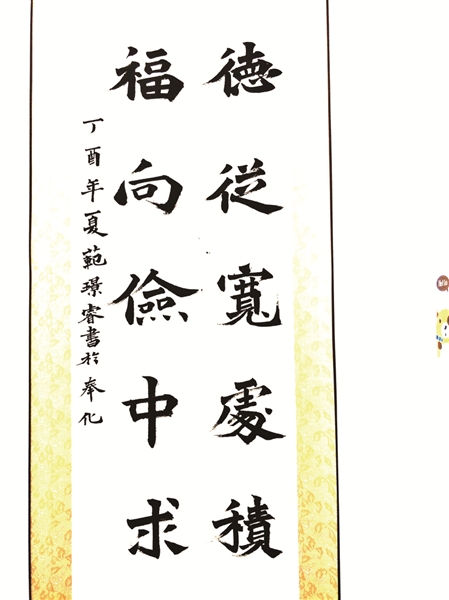 德從寬處積
福向儉中求
丁酉年夏範璟睿書於奉化